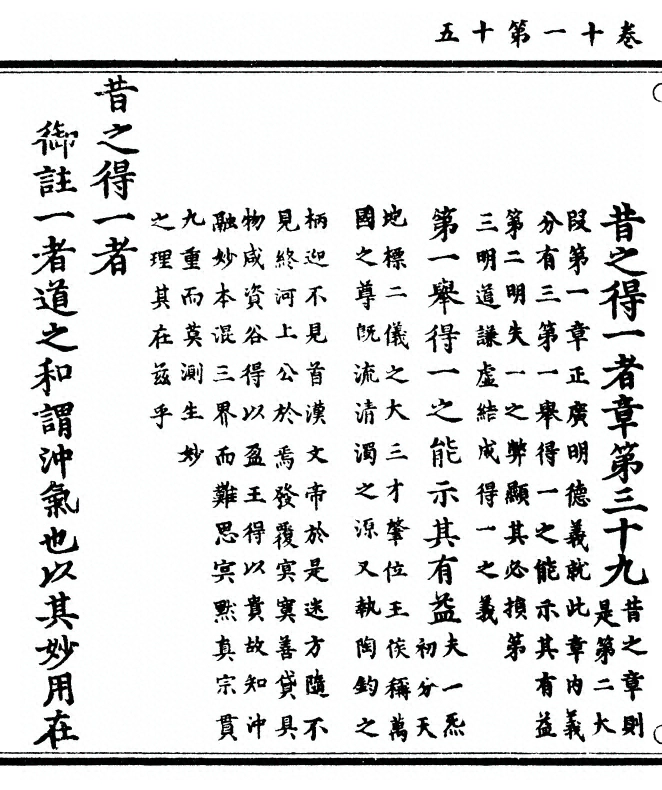 卷十一第十五
昔之得一者章第三十九
昔之章則
是第二大
段第一章正廣明德義就此章内義
分有三第一舉得一之能示其有益
第二明失一之弊顯其必損第
三明道謙虛結成得一之義
第一舉得一之能示其有益
夫一炁
初分天
地標二儀之大三才肇位王侯稱萬
國之尊旣流清濁之源又執陶鈞之
柄迎不見首漢文帝於是迷方隨不
見終河上公於焉發覆㝠㝠善貸具
物咸資谷得以盈王得以貴故知沖
融妙本混三界而難思㝠默真宗貫
九重而莫測生妙
之理其在茲乎
昔之得一者
御註一者道之和謂沖氣也以其妙用在